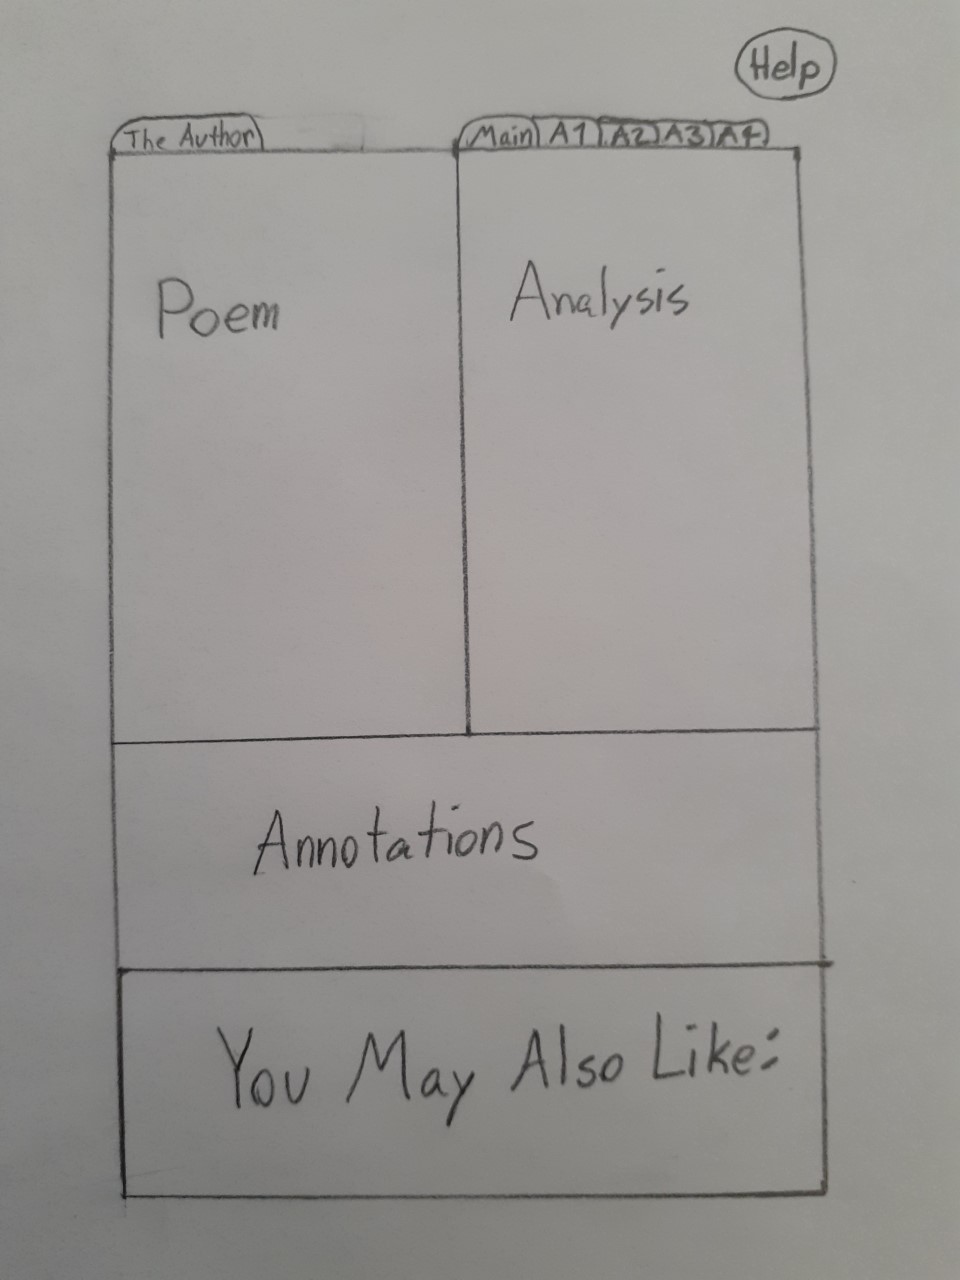 Help
The Author
Main A1 A2 A3 A4
Poem
Analysis
Annotations
You May Also Like: